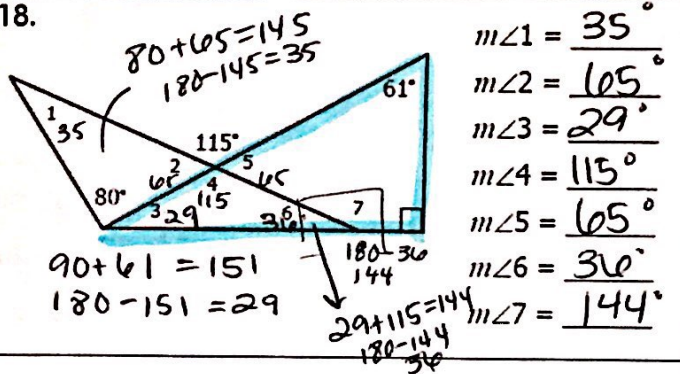 18.
80+65=145
180-145=35
1
35
115°
61°
2
65
5
4
65
80°
115
3
29
6
36
7
90+61=151
180-151=29
180-36
144
29+115=144
180-144
36
m∠1 = 35°
m∠2 = 65°
m∠3 = 29°
m∠4 = 115°
m∠5 = 65°
m∠6 = 36°
m∠7 = 144°